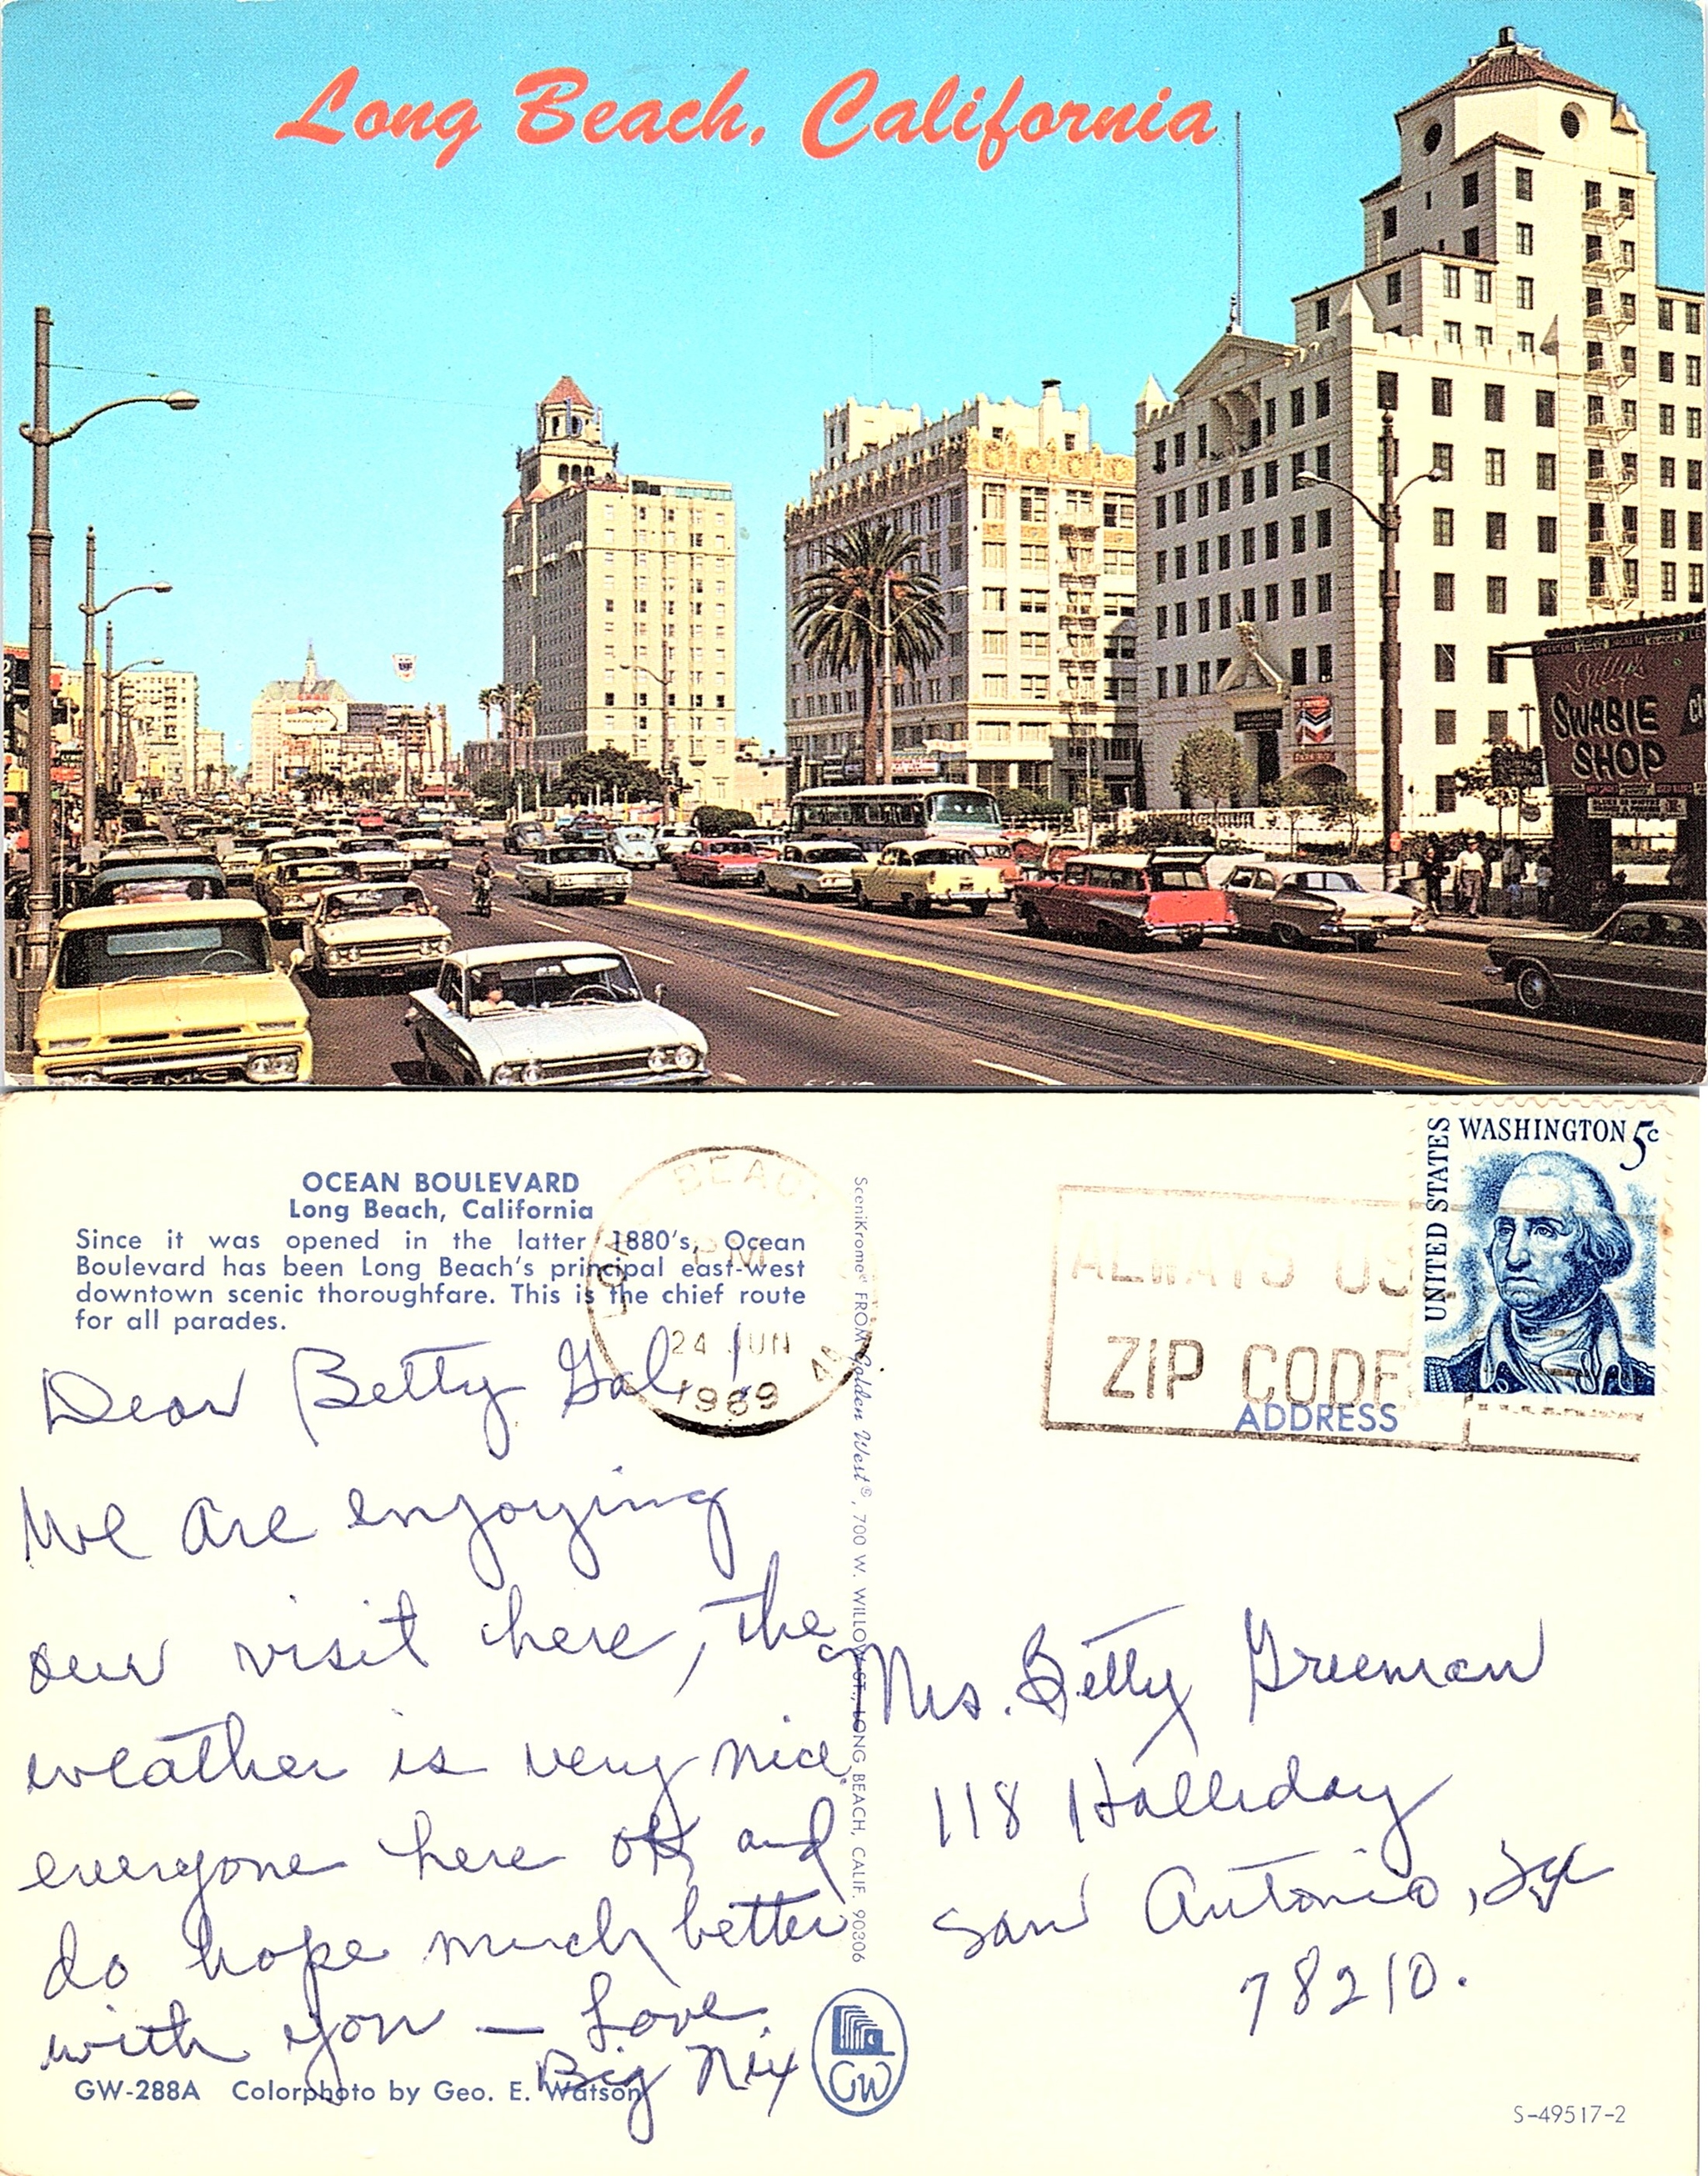 Long Beach, California
Sully's
SWABIE
SHOP
GMC
OCEAN BOULEVARD
Long Beach, California
Since it was opened in the latter 1880's, Ocean
Boulevard has been Long Beach's principal east-west
downtown scenic thoroughfare. This is the chief route
for all parades.
LONG BEACH
PM
24 JUN
1969
ALWAYS US
ZIP CODE
UNITED STATES
WASHINGTON 5c
ADDRESS
Dear Betty Gal!
We are enjoying
our visit here, the
weather is very nice.
everyone here ok and
do hope much better
with you — Love.
Big Nix
SceniKrome FROM Golden West®, 700 W. WILLOW ST., LONG BEACH, CALIF. 90306
Mrs. Betty Greeman
118 Halliday
San Antonio, Tx
78210.
GW
GW-288A Colorphoto by Geo. E. Watson
S-49517-2